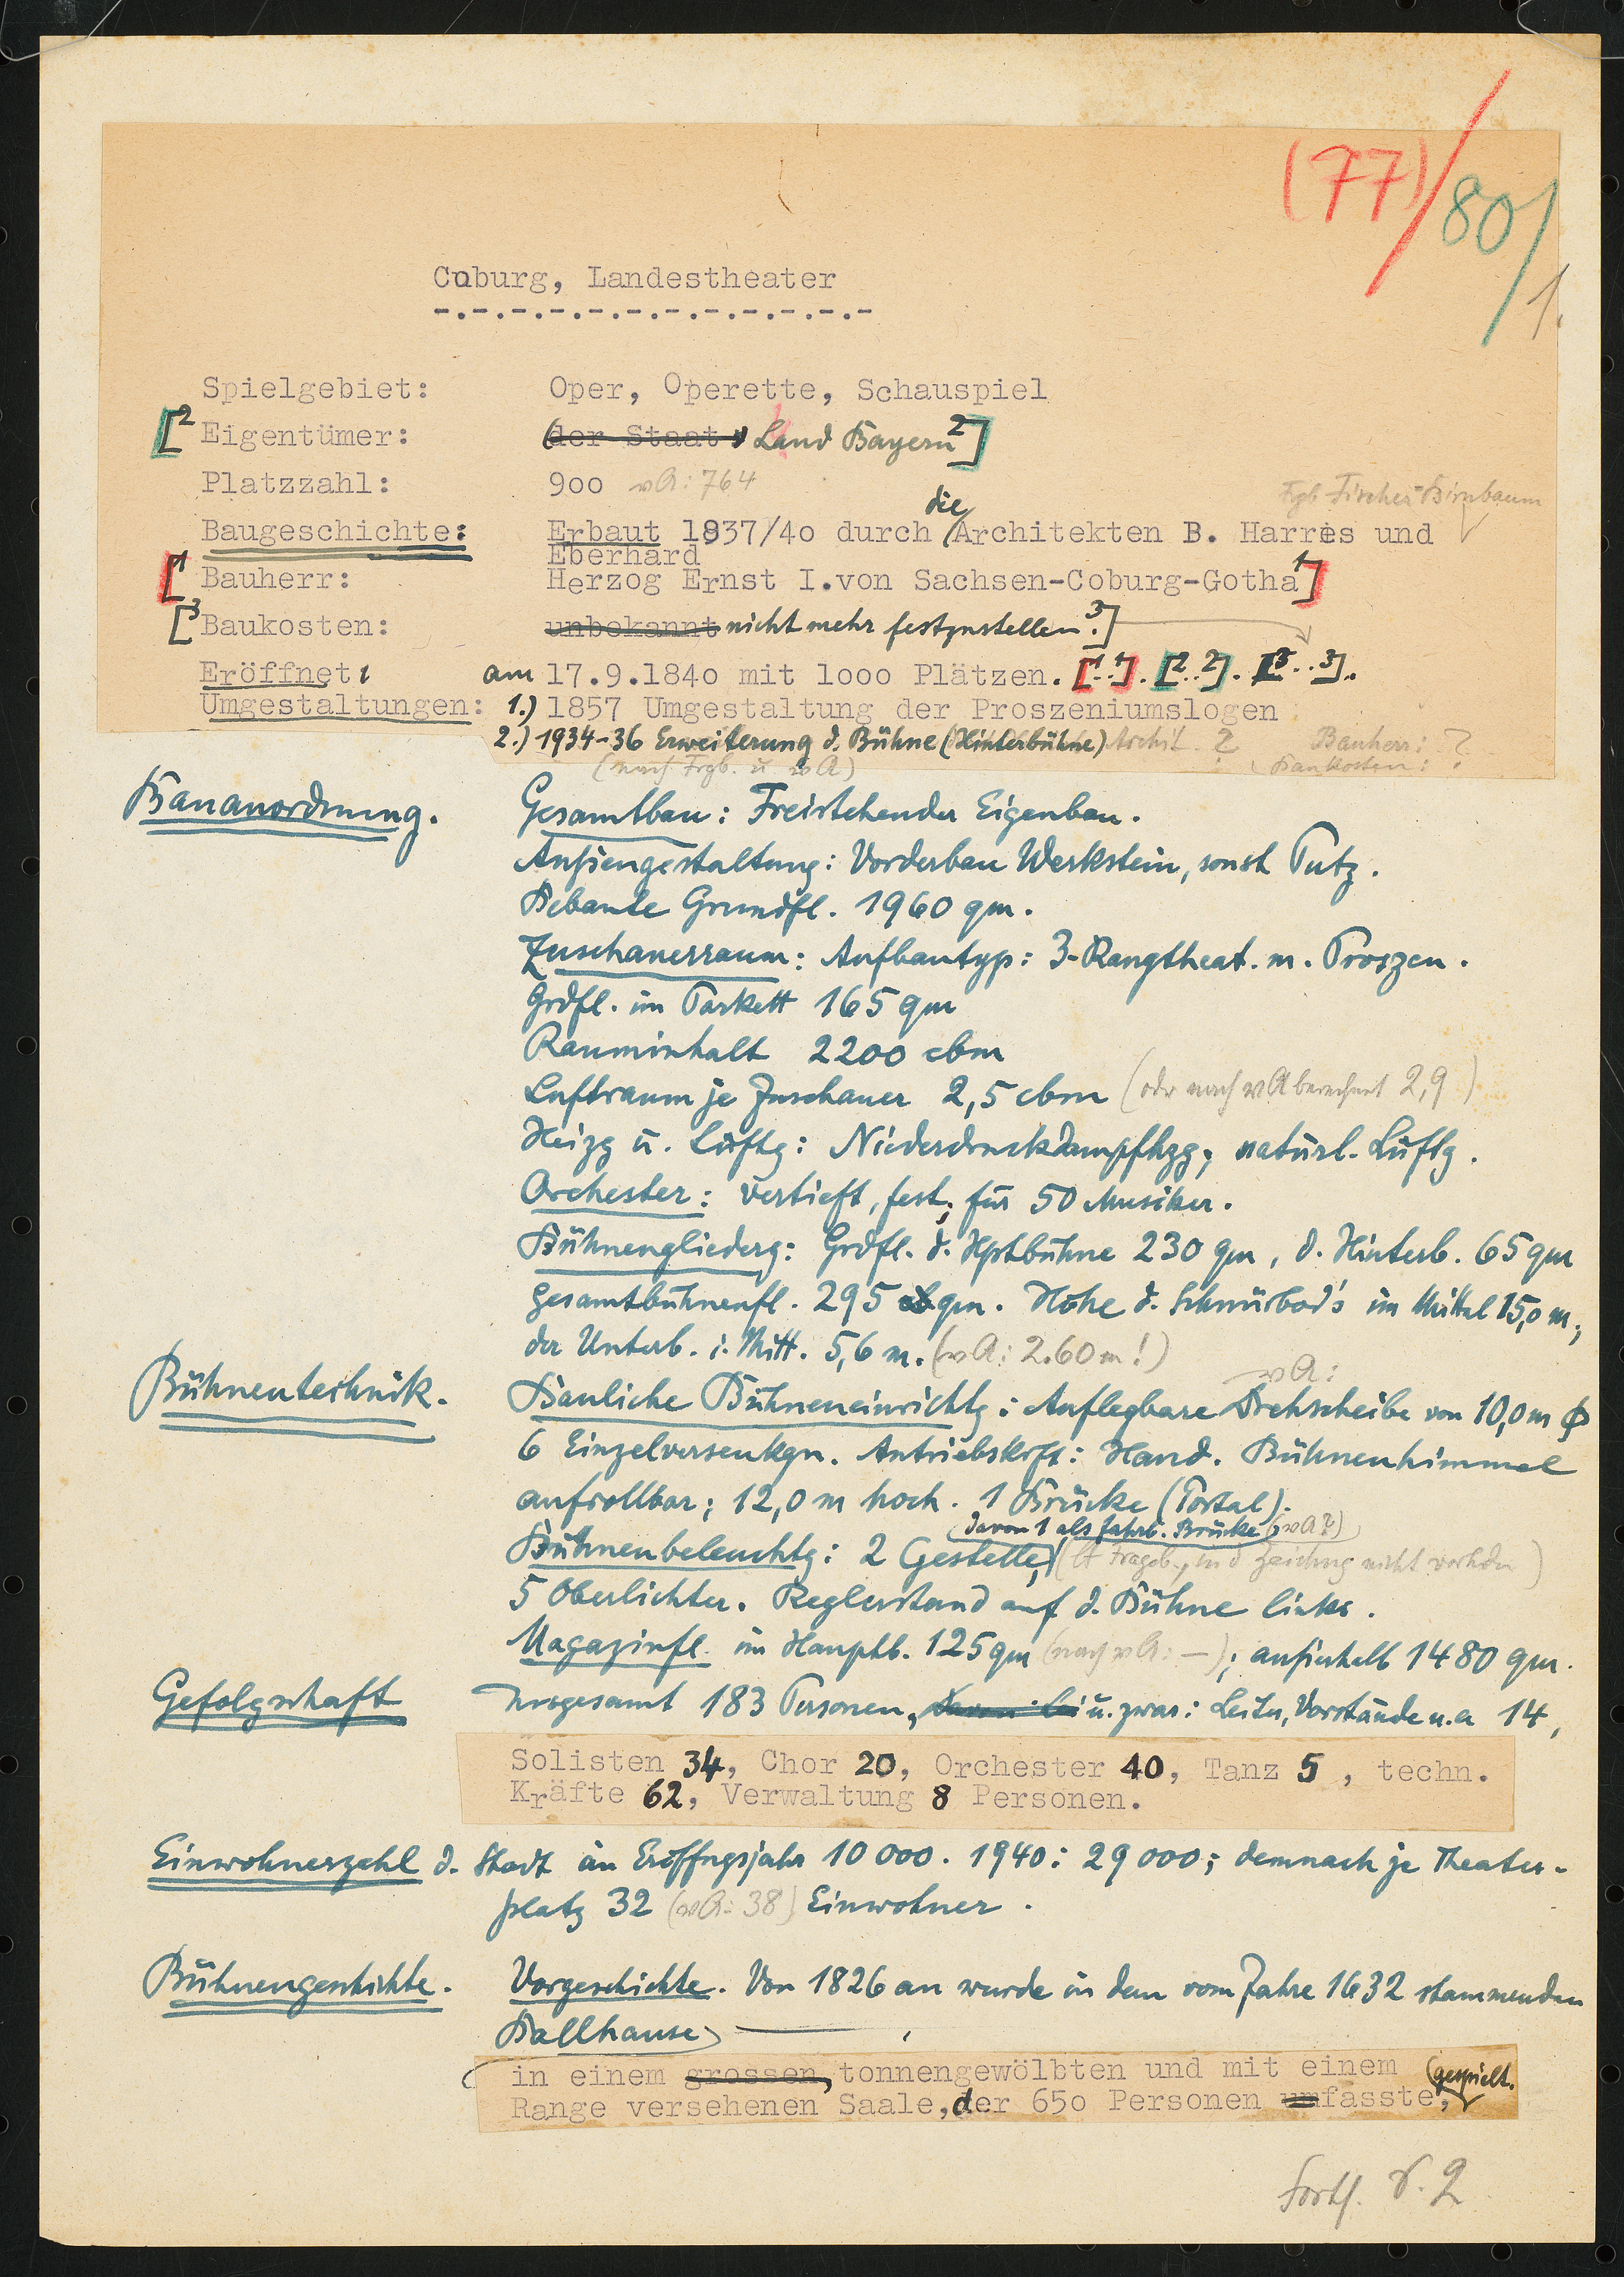 (77)/80/1.
Coburg, Landestheater
-.-.-.-.-.-.-.-.-.-.-.-
Spielgebiet: Oper, Operette, Schauspiel
[2 Eigentümer: (der Staat) Land Bayern 2]
Platzzahl: 9oo vA: 764
Frgb Fischer-Birnbaum
Baugeschichte: Erbaut 1837/4o durch die Architekten B. Harres und
Eberhard
[1 Bauherr: Herzog Ernst I.von Sachsen-Coburg-Gotha 1]
[3 Baukosten: unbekannt nicht mehr festzustellen. 3]
Eröffnet: am 17.9.184o mit 1ooo Plätzen. [1..1]. [2..2]. [3..3].
Umgestaltungen: 1.) 1857 Umgestaltung der Proszeniumslogen
2.) 1934-36 Erweiterung d. Bühne (Hinterbühne) Archit. ? Bauherr: ?
(nach Frgb. u vA) Baukosten: ?
Bauanordnung. Gesamtbau: Freistehender Eigenbau.
Außengestaltung: Vorderbau Werkstein, sonst Putz.
Bebaute Grundfl. 1960 qm.
Zuschauerraum: Aufbautyp: 3-Rangtheat. m. Proszen.
Grdfl. im Parkett 165 qm
Rauminhalt 2200 cbm
Luftraum je Zuschauer 2,5 cbm (oder nach vA berechnet 2,9)
Heizg u. Lüftg: Niederdruckdampfhzg; natürl. Lüftg.
Orchester: vertieft, fest, für 50 Musiker.
Bühnengliederg: Grdfl. d. Hptbühne 230 qm, d. Hinterb. 65 qm
Gesamtbühnenfl. 295 qm. Höhe d. Schnürbod's im Mittel 15,0 m;
der Unterb. i. Mitt. 5,6 m. (vA: 2.60 m!)
vA:
Bühnentechnik. Bauliche Bühneneinrichtg: Auflegbare Drehscheibe von 10,0 m ϕ
6 Einzelversenkgn. Antriebskrft: Hand. Bühnenhimmel
aufrollbar; 12,0 m hoch. 1 Brücke (Portal).
davon 1 als fahrb. Brücke (vA?)
Bühnenbeleuchtg: 2 Gestelle, (lt Frageb., in d Zeichng nicht vorhdn)
5 Oberlichter. Reglerstand auf d. Bühne links.
Magazinfl. im Hauptb. 125 qm (nach vA: —); außerhalb 1480 qm.
Gefolgschaft Insgesamt 183 Personen, u. zwar: Leiter, Vorstände u.a 14,
Solisten 34, Chor 20, Orchester 40, Tanz 5 , techn.
Kräfte 62, Verwaltung 8 Personen.
Einwohnerzahl d. Stadt im Eröffngsjahr 10 000. 1940: 29 000; demnach je Theater-
platz 32 (vA: 38) Einwohner.
Bühnengeschichte. Vorgeschichte. Von 1826 an wurde in dem vom Jahre 1632 stammenden
Ballhause
in einem grossen, tonnengewölbten und mit einem
Range versehenen Saale, der 65o Personen umfasste, gespielt.
Forts. S. 2